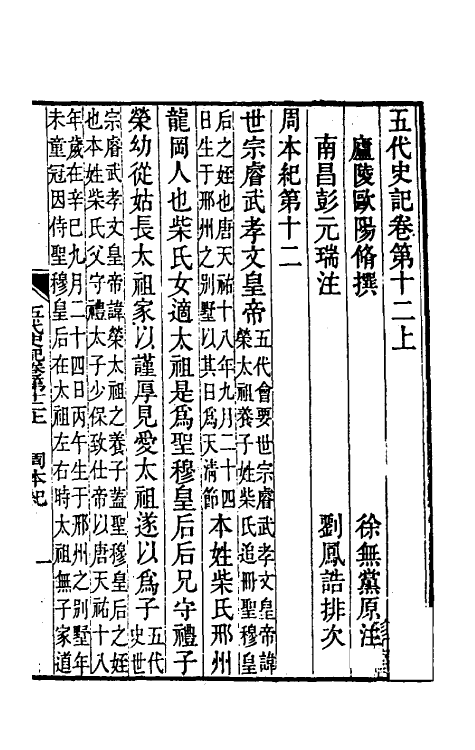 五代史記卷第十二上
廬陵歐陽脩撰　徐無黨原注
南昌彭元瑞注　劉鳳誥排次
周本紀第十二
世宗睿武孝文皇帝五代會要世宗睿武孝文皇帝諱
榮太祖養子姓柴氏追冊聖穆皇
后之姪也唐天祐十八年九月二十四
日生于邢州之别墅以其日爲天淸節本姓柴氏邢州
龍岡人也柴氏女適太祖是爲聖穆皇后后兄守禮子
榮幼從姑長太祖家以謹厚見愛太祖遂以爲子五代
史世
宗睿武孝文皇帝諱榮太祖之養子蓋聖穆皇后之姪
也本姓柴氏父守禮太子少保致仕帝以唐天祐十八
年歲在辛巳九月二十四日丙午生于邢州之别墅年
未童冠因侍聖穆皇后在太祖左右時太祖無子家道
五代史記卷第十二上　周本紀　一